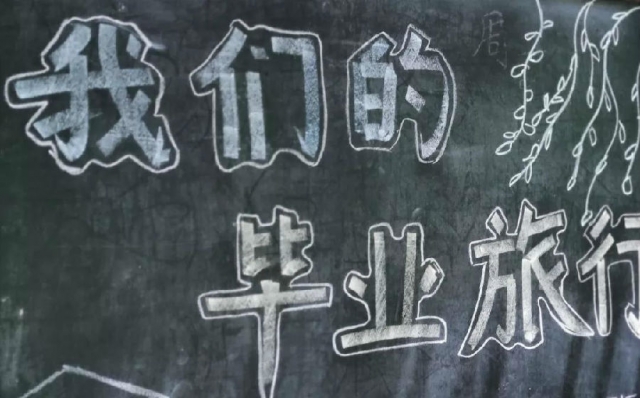 我们的
毕业旅行